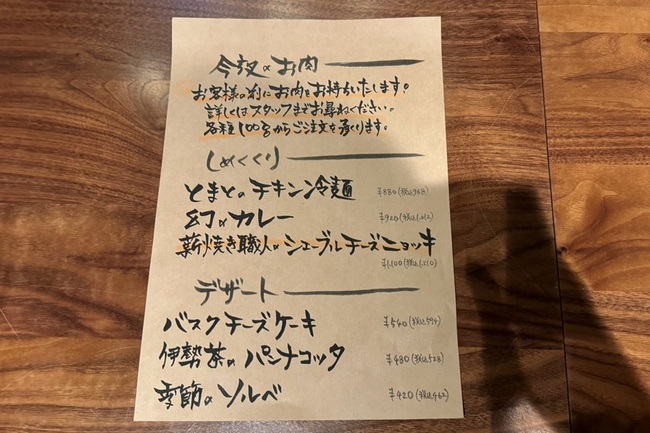 今夜のお肉
お客様の前にお肉をお持ちいたします。
詳しくはスタッフまでお尋ねください。
各種100gからご注文を承ります。
しめくくり
とまとのチキン冷麺 ¥880(税込968)
幻のカレー ¥920(税込1,012)
薪焼き職人のシェーブルチーズニョッキ
¥1,100(税込1,210)
デザート
バスクチーズケーキ ¥540(税込594)
伊勢茶のパンナコッタ ¥480(税込528)
季節のソルベ ¥420(税込462)